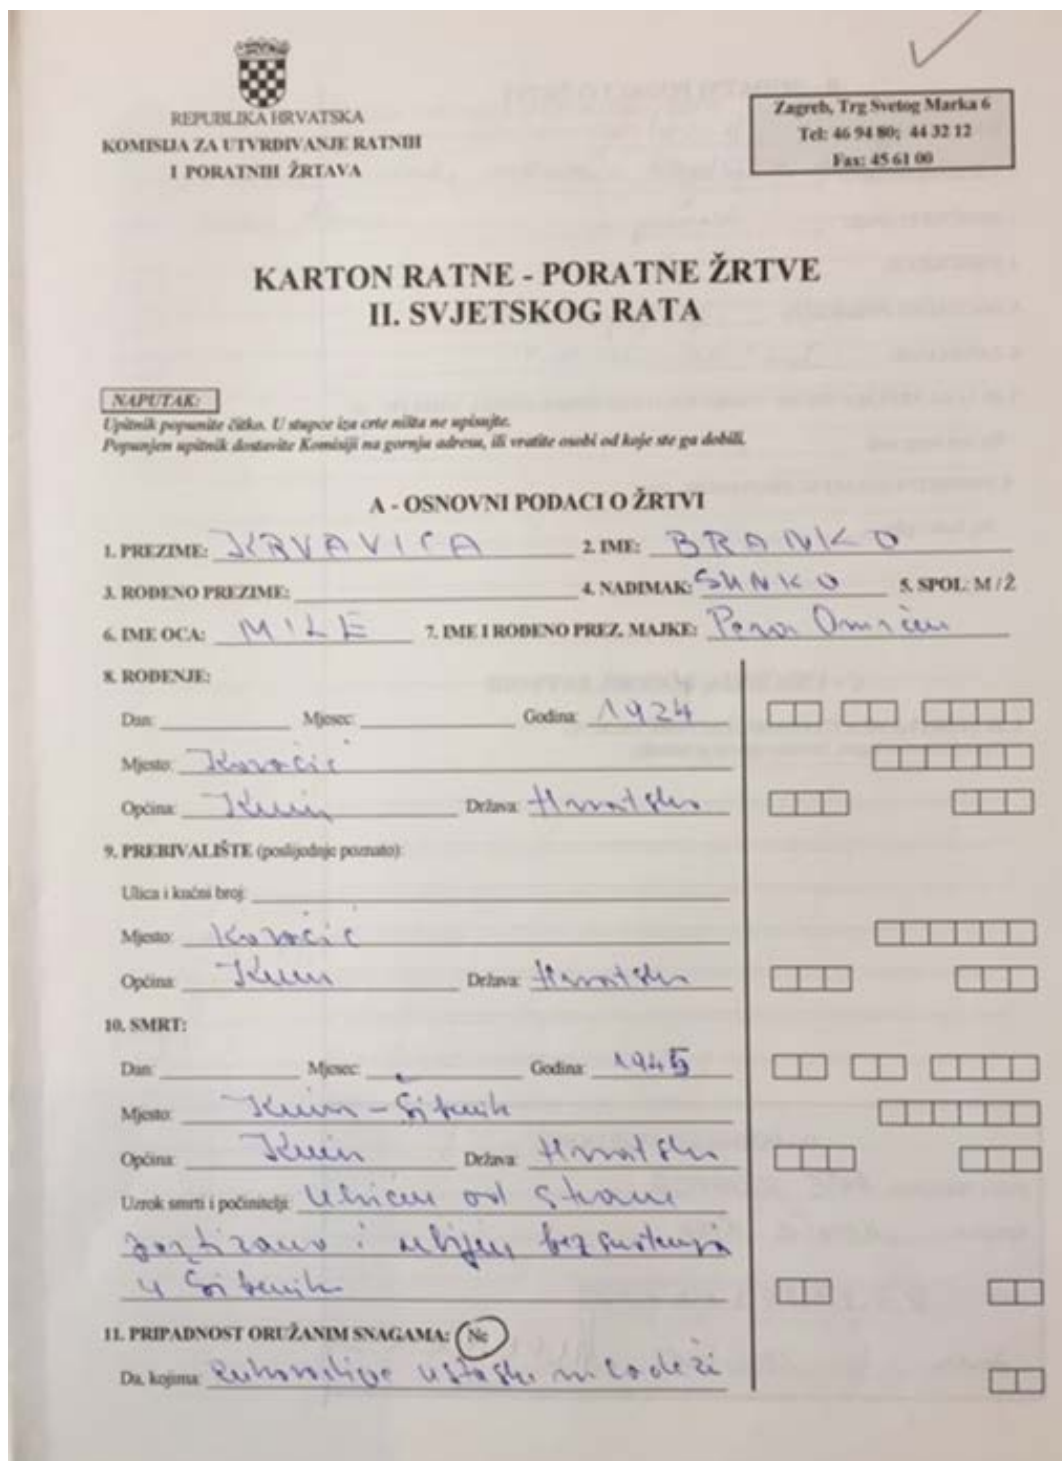 REPUBLIKA HRVATSKA
KOMISIJA ZA UTVRĐIVANJE RATNIH
I PORATNIH ŽRTAVA
Zagreb, Trg Svetog Marka 6
Tel: 46 94 80; 44 32 12
Fax: 45 61 00
KARTON RATNE - PORATNE ŽRTVE
II. SVJETSKOG RATA
NAPUTAK:
Upitnik popunite čitko. U stupce iza crte ništa ne upisujte.
Popunjen upitnik dostavite Komisiji na gornju adresu, ili vratite osobi od koje ste ga dobili.
A - OSNOVNI PODACI O ŽRTVI
1. PREZIME: KRVAVICA 2. IME: BRANKO
3. ROĐENO PREZIME: 4. NADIMAK: SUNKO 5. SPOL: M / Ž
6. IME OCA: MILE 7. IME I ROĐENO PREZ. MAJKE: Pera
8. ROĐENJE:
Dan: Mjesec: Godina: 1924
Mjesto: Kovačić
Općina: Knin Država: Hrvatska
9. PREBIVALIŠTE (posljednje poznato):
Ulica i kućni broj:
Mjesto: Kovačić
Općina: Knin Država: Hrvatska
10. SMRT:
Dan: Mjesec: Godina: 1945
Mjesto: Knin - Šibenik
Općina: Knin Država: Hrvatska
Uzrok smrti i počinitelji: Uhićen od strane
partizana i ubijen bez suđenja
u Šibenik
11. PRIPADNOST ORUŽANIM SNAGAMA: Ne
Da, kojima: ustaške mladeži